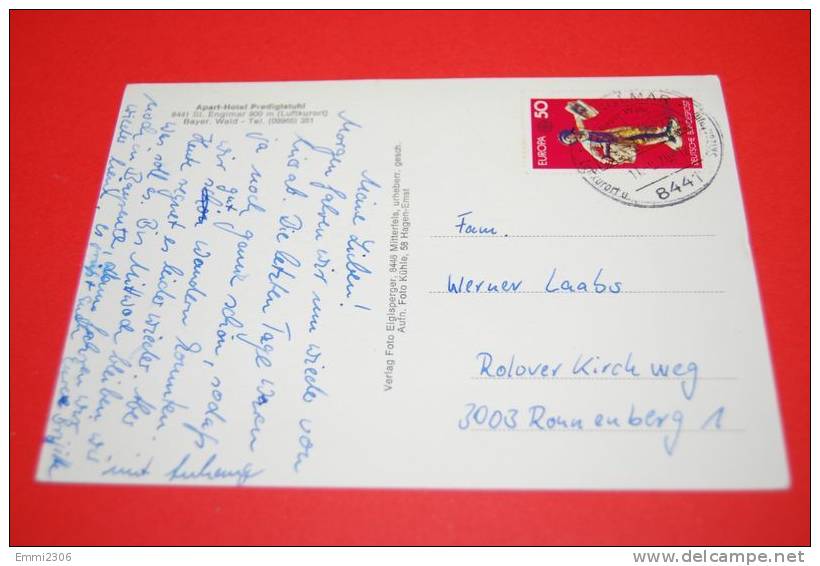 Apart-Hotel Predigtstuhl
8441 St. Englmar 900 m (Luftkurort)
Bayer. Wald - Tel. (09965) 281
Meine Lieben!
Morgen fahren wir nun wieder von
hier ab. Die letzten Tage waren
ja noch ganz schön, sodaß
wir gut
wandern konnten.
Heute regnet es leider wieder. Aber
was soll's. Bis Mittwoch bleiben wir
noch in Bayreuth, dann fahren wir
wieder heim,
Verlag Foto Eiglsperger, 8446 Mitterfels, urheberr. gesch.
Aufn. Foto Kühle, 58 Hagen-Emst
50
EUROPA
DEUTSCHE BUNDESPOST
8441
Fam.
Werner Laabs
Rolover Kirchweg
3003 Ronnenberg 1
Emmi2306
delcampe.net